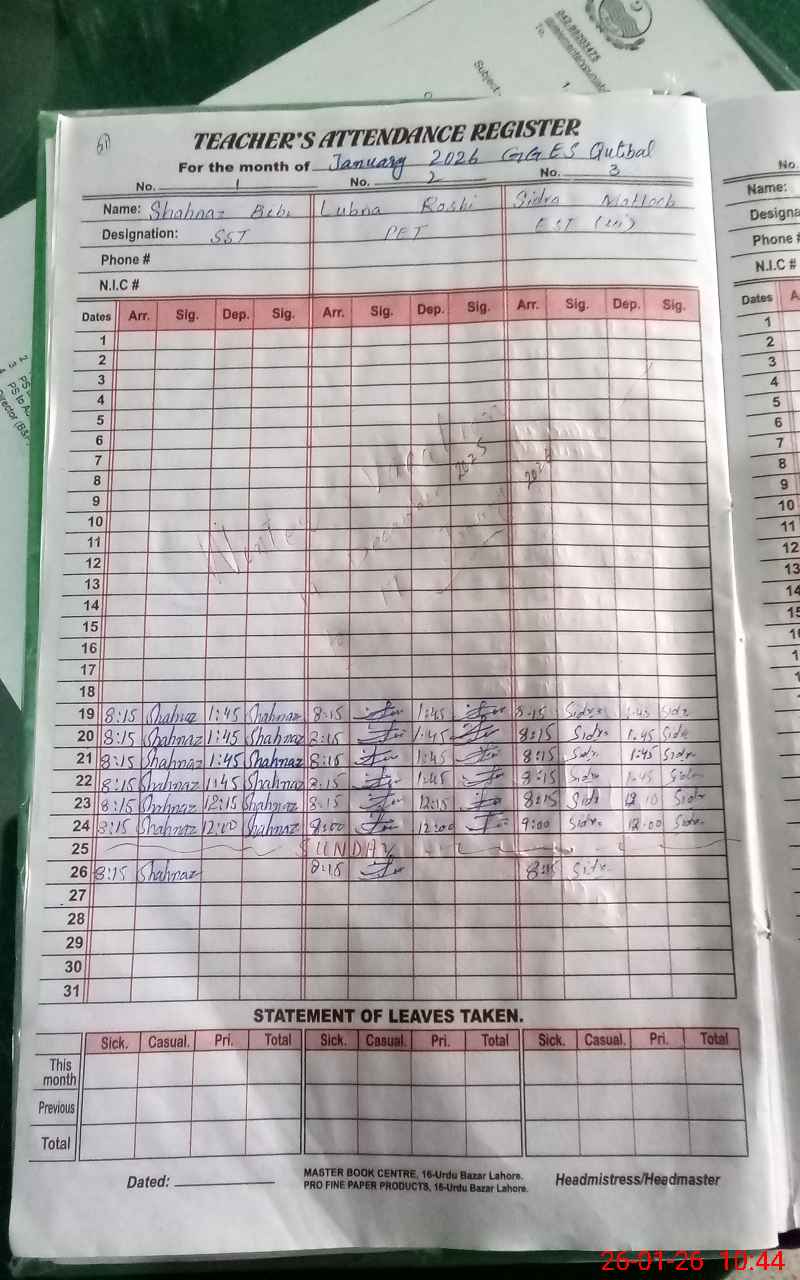 042-99203475
To,
Subject:-
TEACHER'S ATTENDANCE REGISTER
For the month of January 2026 GGES Qutbal
No. 1 No. 2 No. 3
Name: Shahnaz Bibi Lubna Roshi Sidra
Designation: SST PET EST
Phone #
N.I.C #
Dates Arr. Sig. Dep. Sig. Arr. Sig. Dep. Sig. Arr. Sig. Dep. Sig.
1
2
3
4
5
6
7
8
9
10
11
12
13
14
15
16
17
18
Winter Vacation
December 2025
19 8:15 Shahnaz 1:45 Shahnaz 8:15 1:45 8:15 Sidra 1:45 Sidra
20 8:15 Shahnaz 1:45 Shahnaz 8:15 1:45 8:15 Sidra 1:45 Sidra
21 8:15 Shahnaz 1:45 Shahnaz 8:15 1:45 8:15 Sidra 1:45 Sidra
22 8:15 Shahnaz 1:45 Shahnaz 8:15 1:45 8:15 Sidra 1:45 Sidra
23 8:15 Shahnaz 12:15 Shahnaz 8:15 12:15 8:15 Sidra 12:10 Sidra
24 8:15 Shahnaz 12:00 Shahnaz 9:00 12:00 9:00 Sidra 12:00 Sidra
25 SUNDAY
26 8:15 Shahnaz 8:15 8:15 Sidra
27
28
29
30
31
STATEMENT OF LEAVES TAKEN.
Sick. Casual. Pri. Total Sick. Casual. Pri. Total Sick. Casual. Pri. Total
This month
Previous
Total
Dated:
MASTER BOOK CENTRE, 16-Urdu Bazar Lahore.
PRO FINE PAPER PRODUCTS, 16-Urdu Bazar Lahore.
Headmistress/Headmaster
No.
Name:
Designa
Phone #
N.I.C #
Dates A
1
2
3
4
5
6
7
8
9
10
11
12
13
14
15
26-01-26 10:44